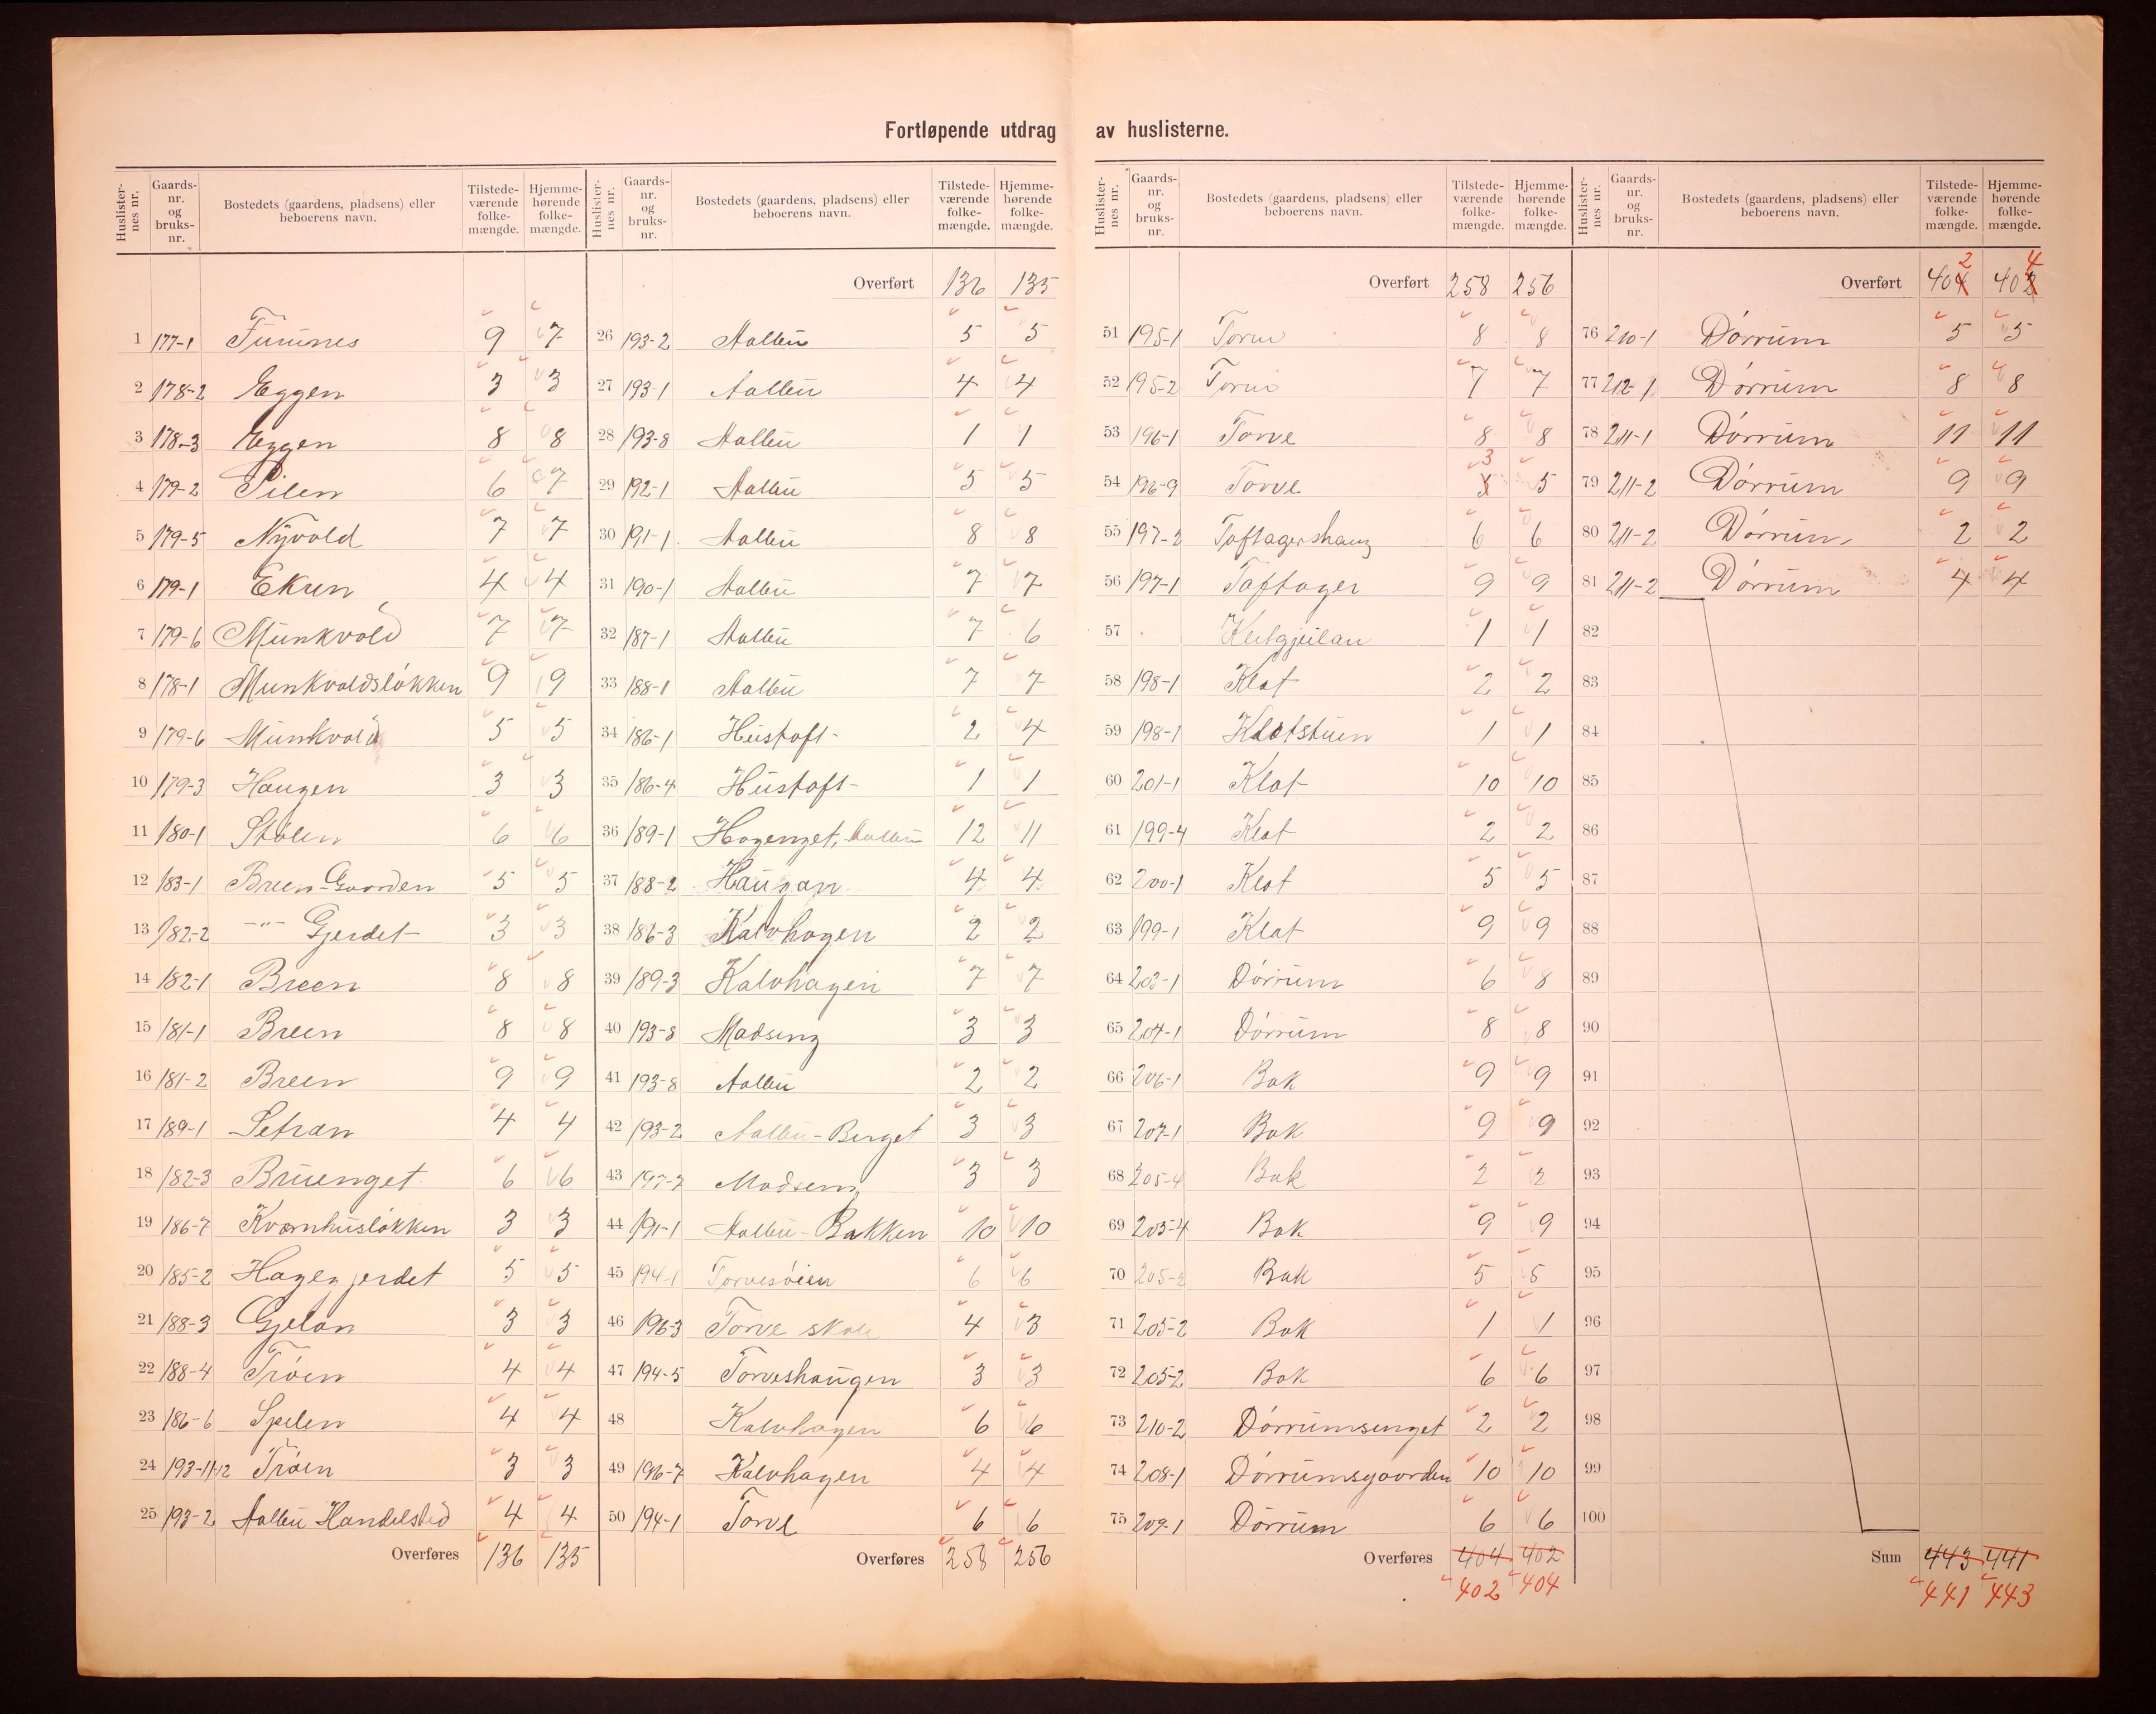 Fortløpende utdrag av huslisterne.
Huslister-nes nr. Gaards-nr. og bruks-nr. Bostedets (gaardens, pladsens) eller beboerens navn. Tilstede-værende folke-mængde. Hjemme-hørende folke-mængde.
1 177-1 Furunes 9 7
2 178-2 Eggen 3 3
3 178-3 Eggen 8 8
4 179-2 Pilen 6 7
5 179-5 Nyvold 7 7
6 179-1 Ekren 4 4
7 179-6 Munkvold 7 7
8 178-1 Munkvoldsløkken 9 9
9 179-6 Munkvold 5 5
10 179-3 Haugen 3 3
11 180-1 Stølen 6 6
12 183-1 Breen-Gaarden 5 5
13 182-2 -"- Gjerdet 3 3
14 182-1 Breen 8 8
15 181-1 Breen 8 8
16 181-2 Breen 9 9
17 189-1 Setran 4 4
18 182-3 Bruenget 6 6
19 186-7 Kvarnhusløkken 3 3
20 185-2 Hagegjerdet 5 5
21 188-3 Gjelan 3 3
22 188-4 Trøen 4 4
23 186-6 Spelen 4 4
24 193-11-12 Trøen 3 3
25 193-2 Aalbu Handelsted 4 4
Overføres 136 135
Huslister-nes nr. Gaards-nr. og bruks-nr. Bostedets (gaardens, pladsens) eller beboerens navn. Tilstede-værende folke-mængde. Hjemme-hørende folke-mængde.
Overført 136 135
26 193-2 Aalbu 5 5
27 193-1 Aalbu 4 4
28 193-8 Aalbu 1 1
29 192-1 Aalbu 5 5
30 191-1 Aalbu 8 8
31 190-1 Aalbu 7 7
32 187-1 Aalbu 7 6
33 188-1 Aalbu 7 7
34 186-1 Hustoft 2 4
35 186-4 Hustoft 1 1
36 189-1 Hagenget, Aalbu 12 11
37 188-2 Haugan 4 4
38 186-3 Kalvhagen 2 2
39 189-3 Kalvhagen 7 7
40 193-8 Madseng 3 3
41 193-8 Aalbu 2 2
42 193-2 Aalbu-Berget 3 3
43 Madseng 3 3
44 191-1 Aalbu-Bakken 10 10
45 194-1 Torvesøien 6 6
46 196-3 Torve skole 4 3
47 194-5 Torveshaugen 3 3
48 Kalvhagen 6 6
49 196-7 Kalvhagen 4 4
50 194-1 Torve 6 6
Overføres 258 256
Huslister-nes nr. Gaards-nr. og bruks-nr. Bostedets (gaardens, pladsens) eller beboerens navn. Tilstede-værende folke-mængde. Hjemme-hørende folke-mængde.
Overført 258 256
51 195-1 Torve 8 8
52 195-2 Torve 7 7
53 196-1 Torve 8 8
54 196-9 Torve 3 5
55 197-2 Toftagershaug 6 6
56 197-1 Toftager 9 9
57 1 1
58 198-1 Klæt 2 2
59 198-1 Klætstuen 1 1
60 201-1 Klæt 10 10
61 199-4 Klæt 2 2
62 200-1 Klæt 5 5
63 199-1 Klæt 9 9
64 202-1 Dørrum 6 8
65 204-1 Dørrum 8 8
66 206-1 Bak 9 9
67 207-1 Bak 9 9
68 205-4 Bak 2 2
69 203-4 Bak 9 9
70 205-2 Bak 5 5
71 205-2 Bak 1 1
72 205-2 Bak 6 6
73 210-2 Dørrumsenget 2 2
74 208-1 Dørrumsgaarden 10 10
75 209-1 Dørrum 6 6
Overføres 404 402
402 404
Huslister-nes nr. Gaards-nr. og bruks-nr. Bostedets (gaardens, pladsens) eller beboerens navn. Tilstede-værende folke-mængde. Hjemme-hørende folke-mængde.
2 4
Overført 404 402
76 210-1 Dørrum 5 5
77 212-1 Dørrum 8 8
78 211-1 Dørrum 11 11
79 211-2 Dørrum 9 9
80 211-2 Dørrum 2 2
81 211-2 Dørrum 4 4
82
83
84
85
86
87
88
89
90
91
92
93
94
95
96
97
98
99
100
Sum 443 441
441 443